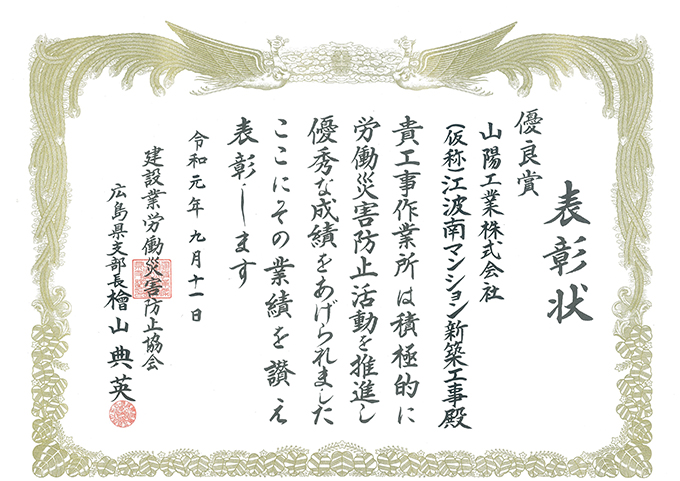 表彰状
優良賞
山陽工業株式会社
(仮称)江波南マンション新築工事殿
貴工事作業所は積極的に
労働災害防止活動を推進し
優秀な成績をあげられました
ここにその業績を讃え
表彰します
令和元年九月十一日
建設業労働災害防止協会
広島県支部長檜山典英